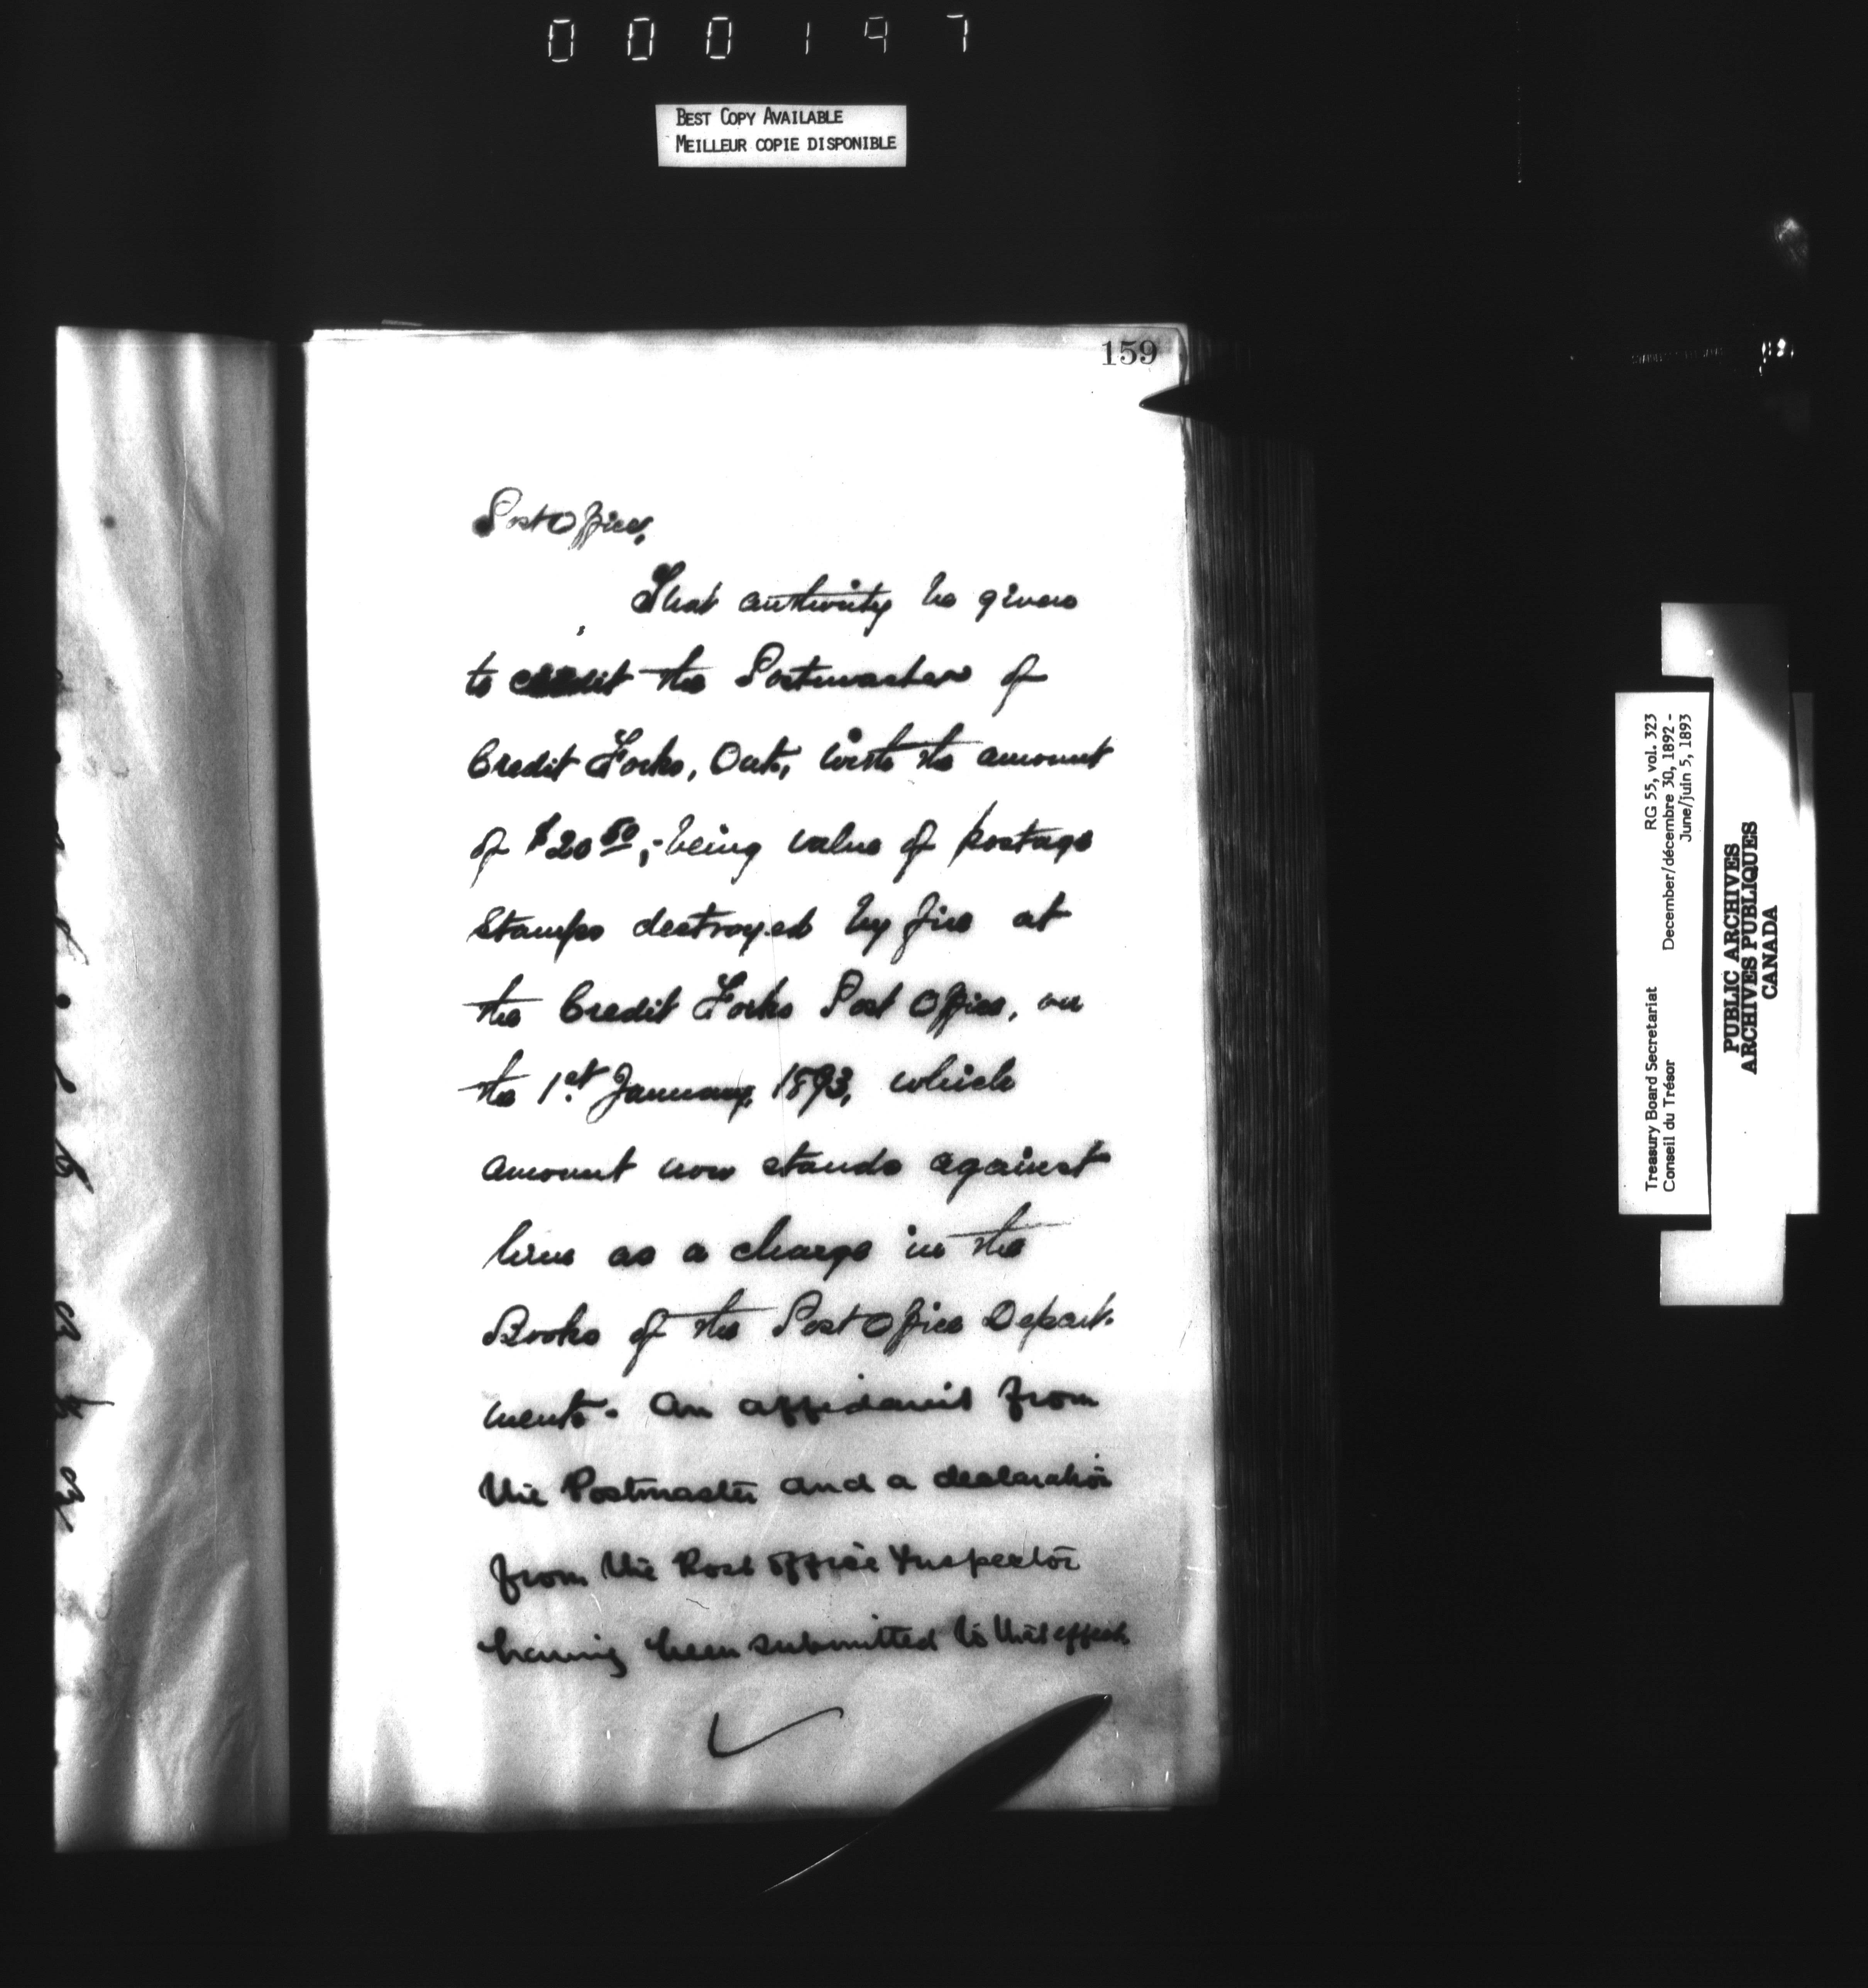 000197
BEST COPY AVAILABLE
MEILLEUR COPIE DISPONIBLE
159
Post Office,
That authority be given
to credit the Postmaster of
Credit Forks, Ont., with the amount
of $20 50, - being value of postage
stamps destroyed by fire at
the Credit Forks Post Office, on
the 1st January, 1893, which
amount now stands against
him as a charge in the
Books of the Post Office Depart-
ment. An affidavit from
the Postmaster and a declaration
from the Post Office Inspector
having been submitted to that effect.
Treasury Board Secretariat RG 55, vol. 323
Conseil du Trésor December/décembre 30, 1892 -
June/juin 5, 1893
PUBLIC ARCHIVES
ARCHIVES PUBLIQUES
CANADA